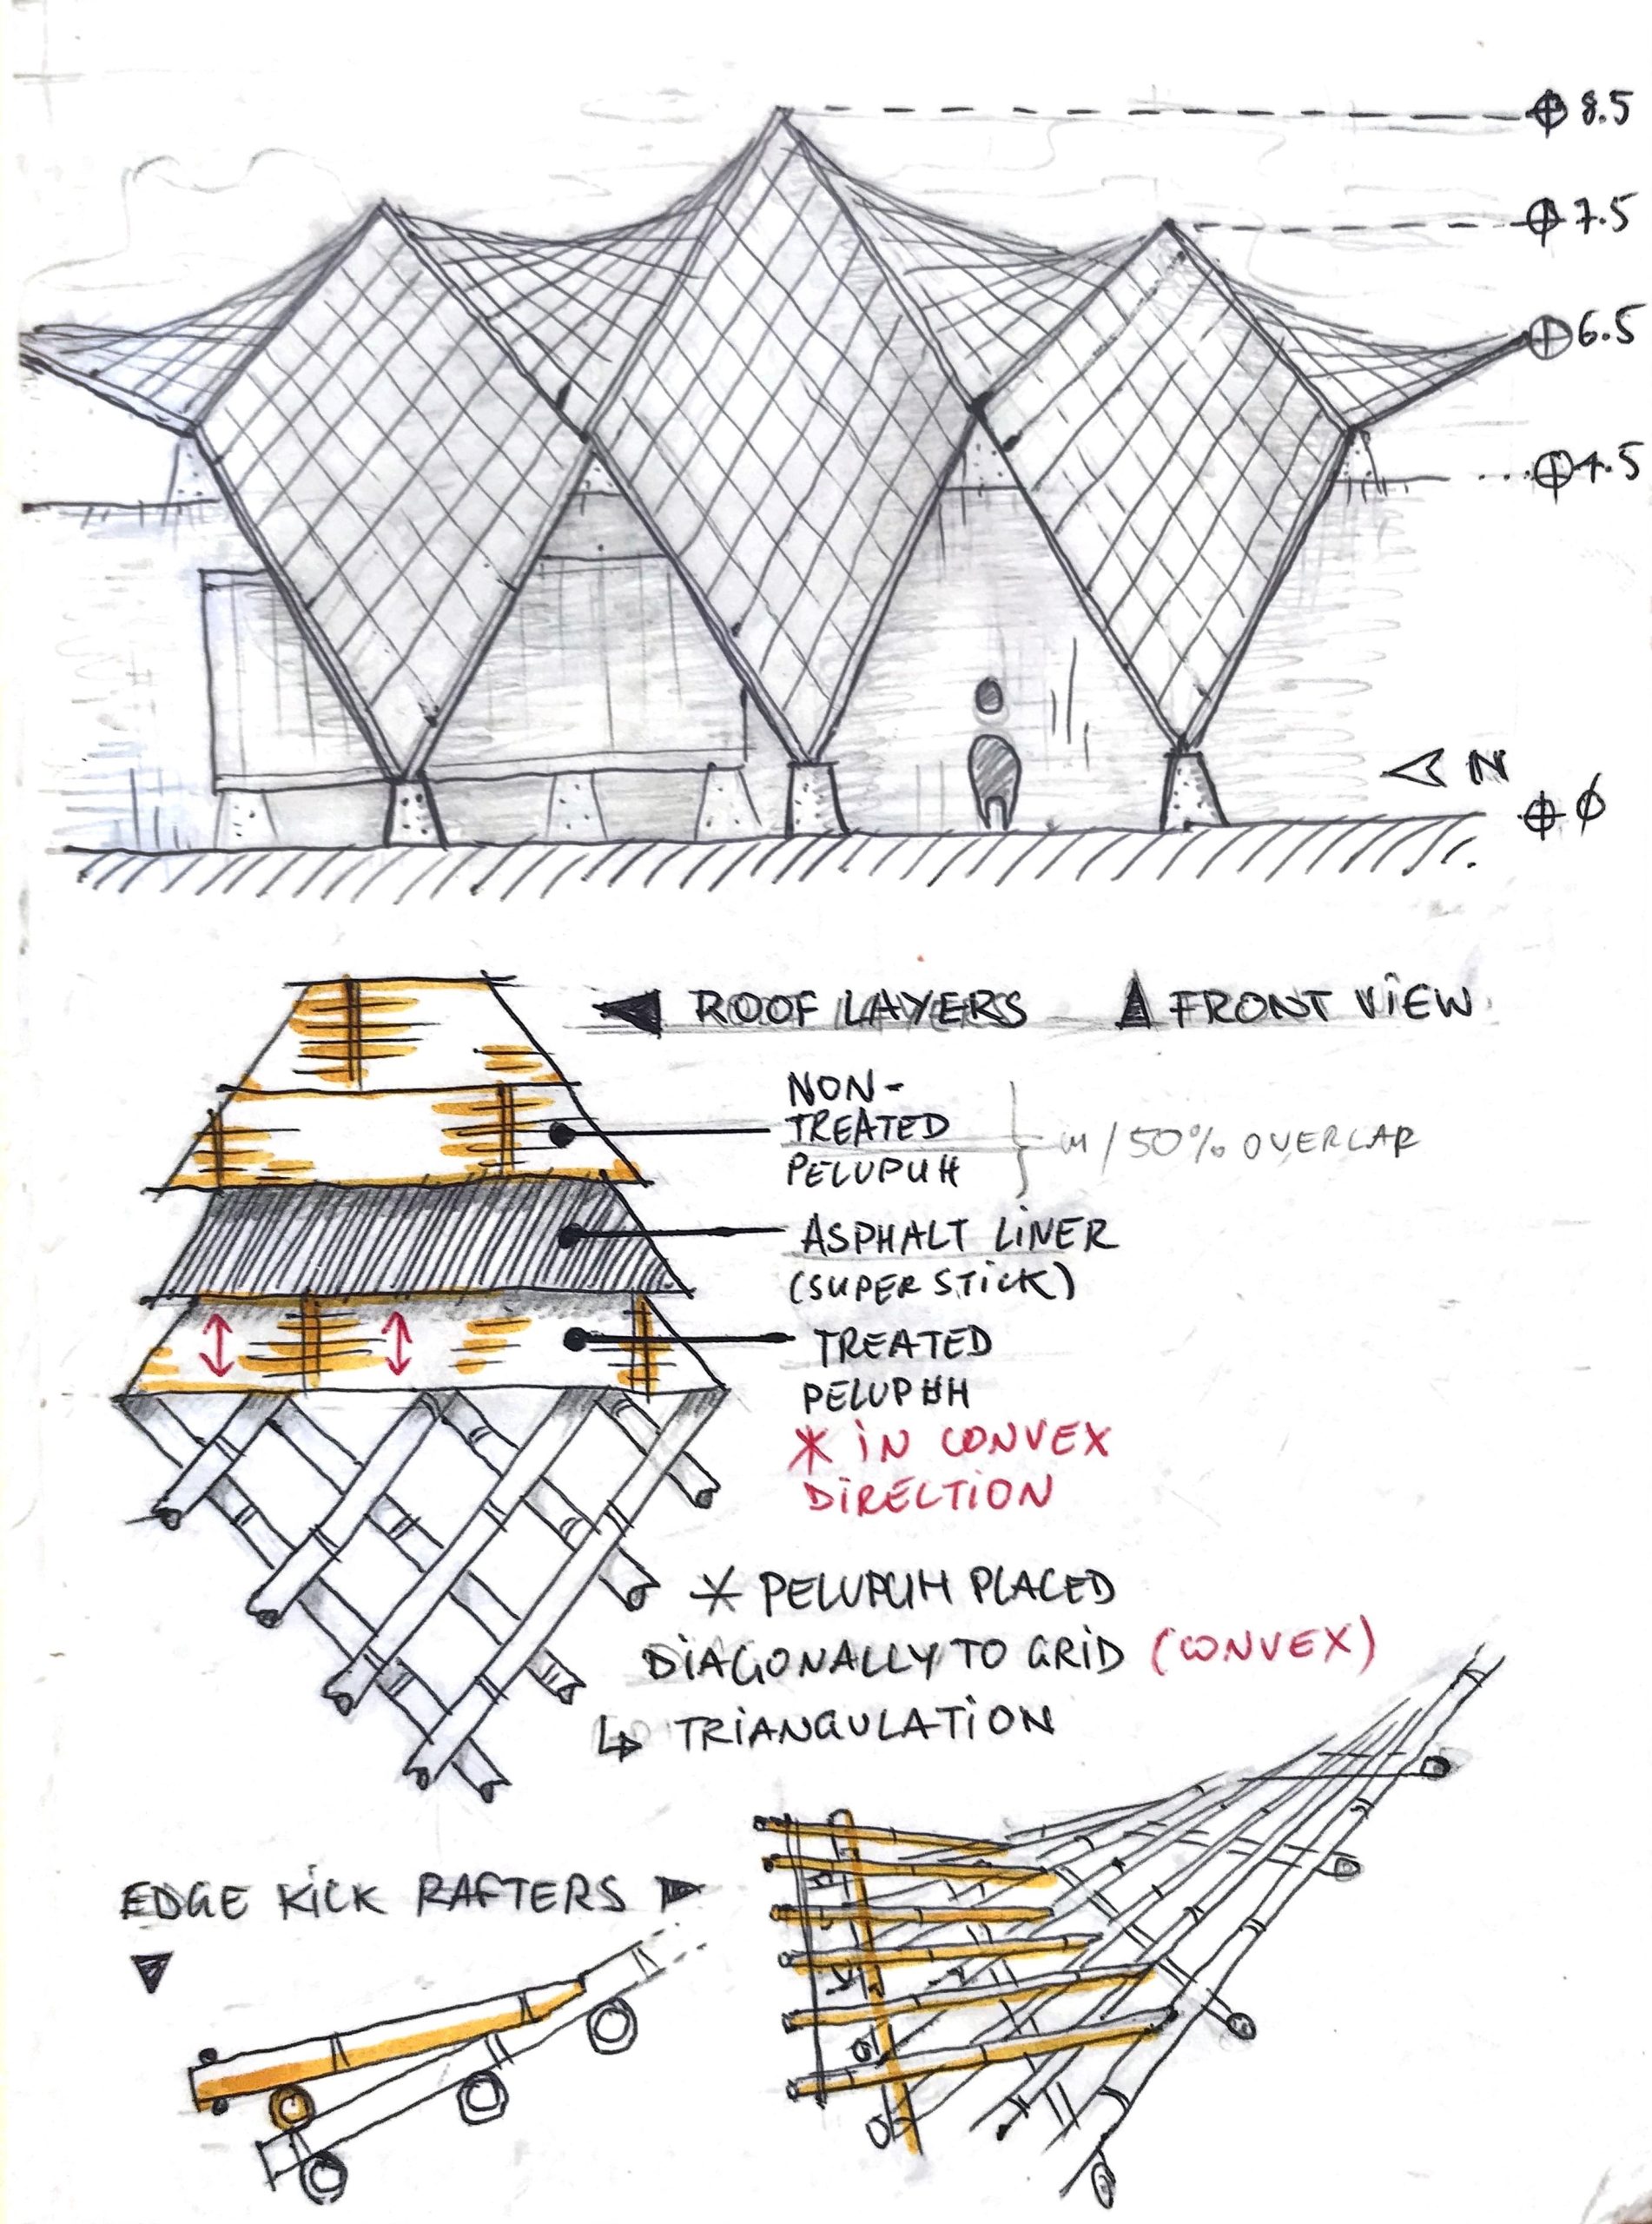 8.5
7.5
6.5
4.5
N
∅
ROOF LAYERS
FRONT VIEW
NON-
TREATED
PELUPUH
w/50% OVERLAP
ASPHALT LINER
(SUPER STICK)
TREATED
PELUPUH
* IN CONVEX
DIRECTION
* PELUPUH PLACED
DIAGONALLY TO GRID (CONVEX)
↳ TRIANGULATION
EDGE KICK RAFTERS